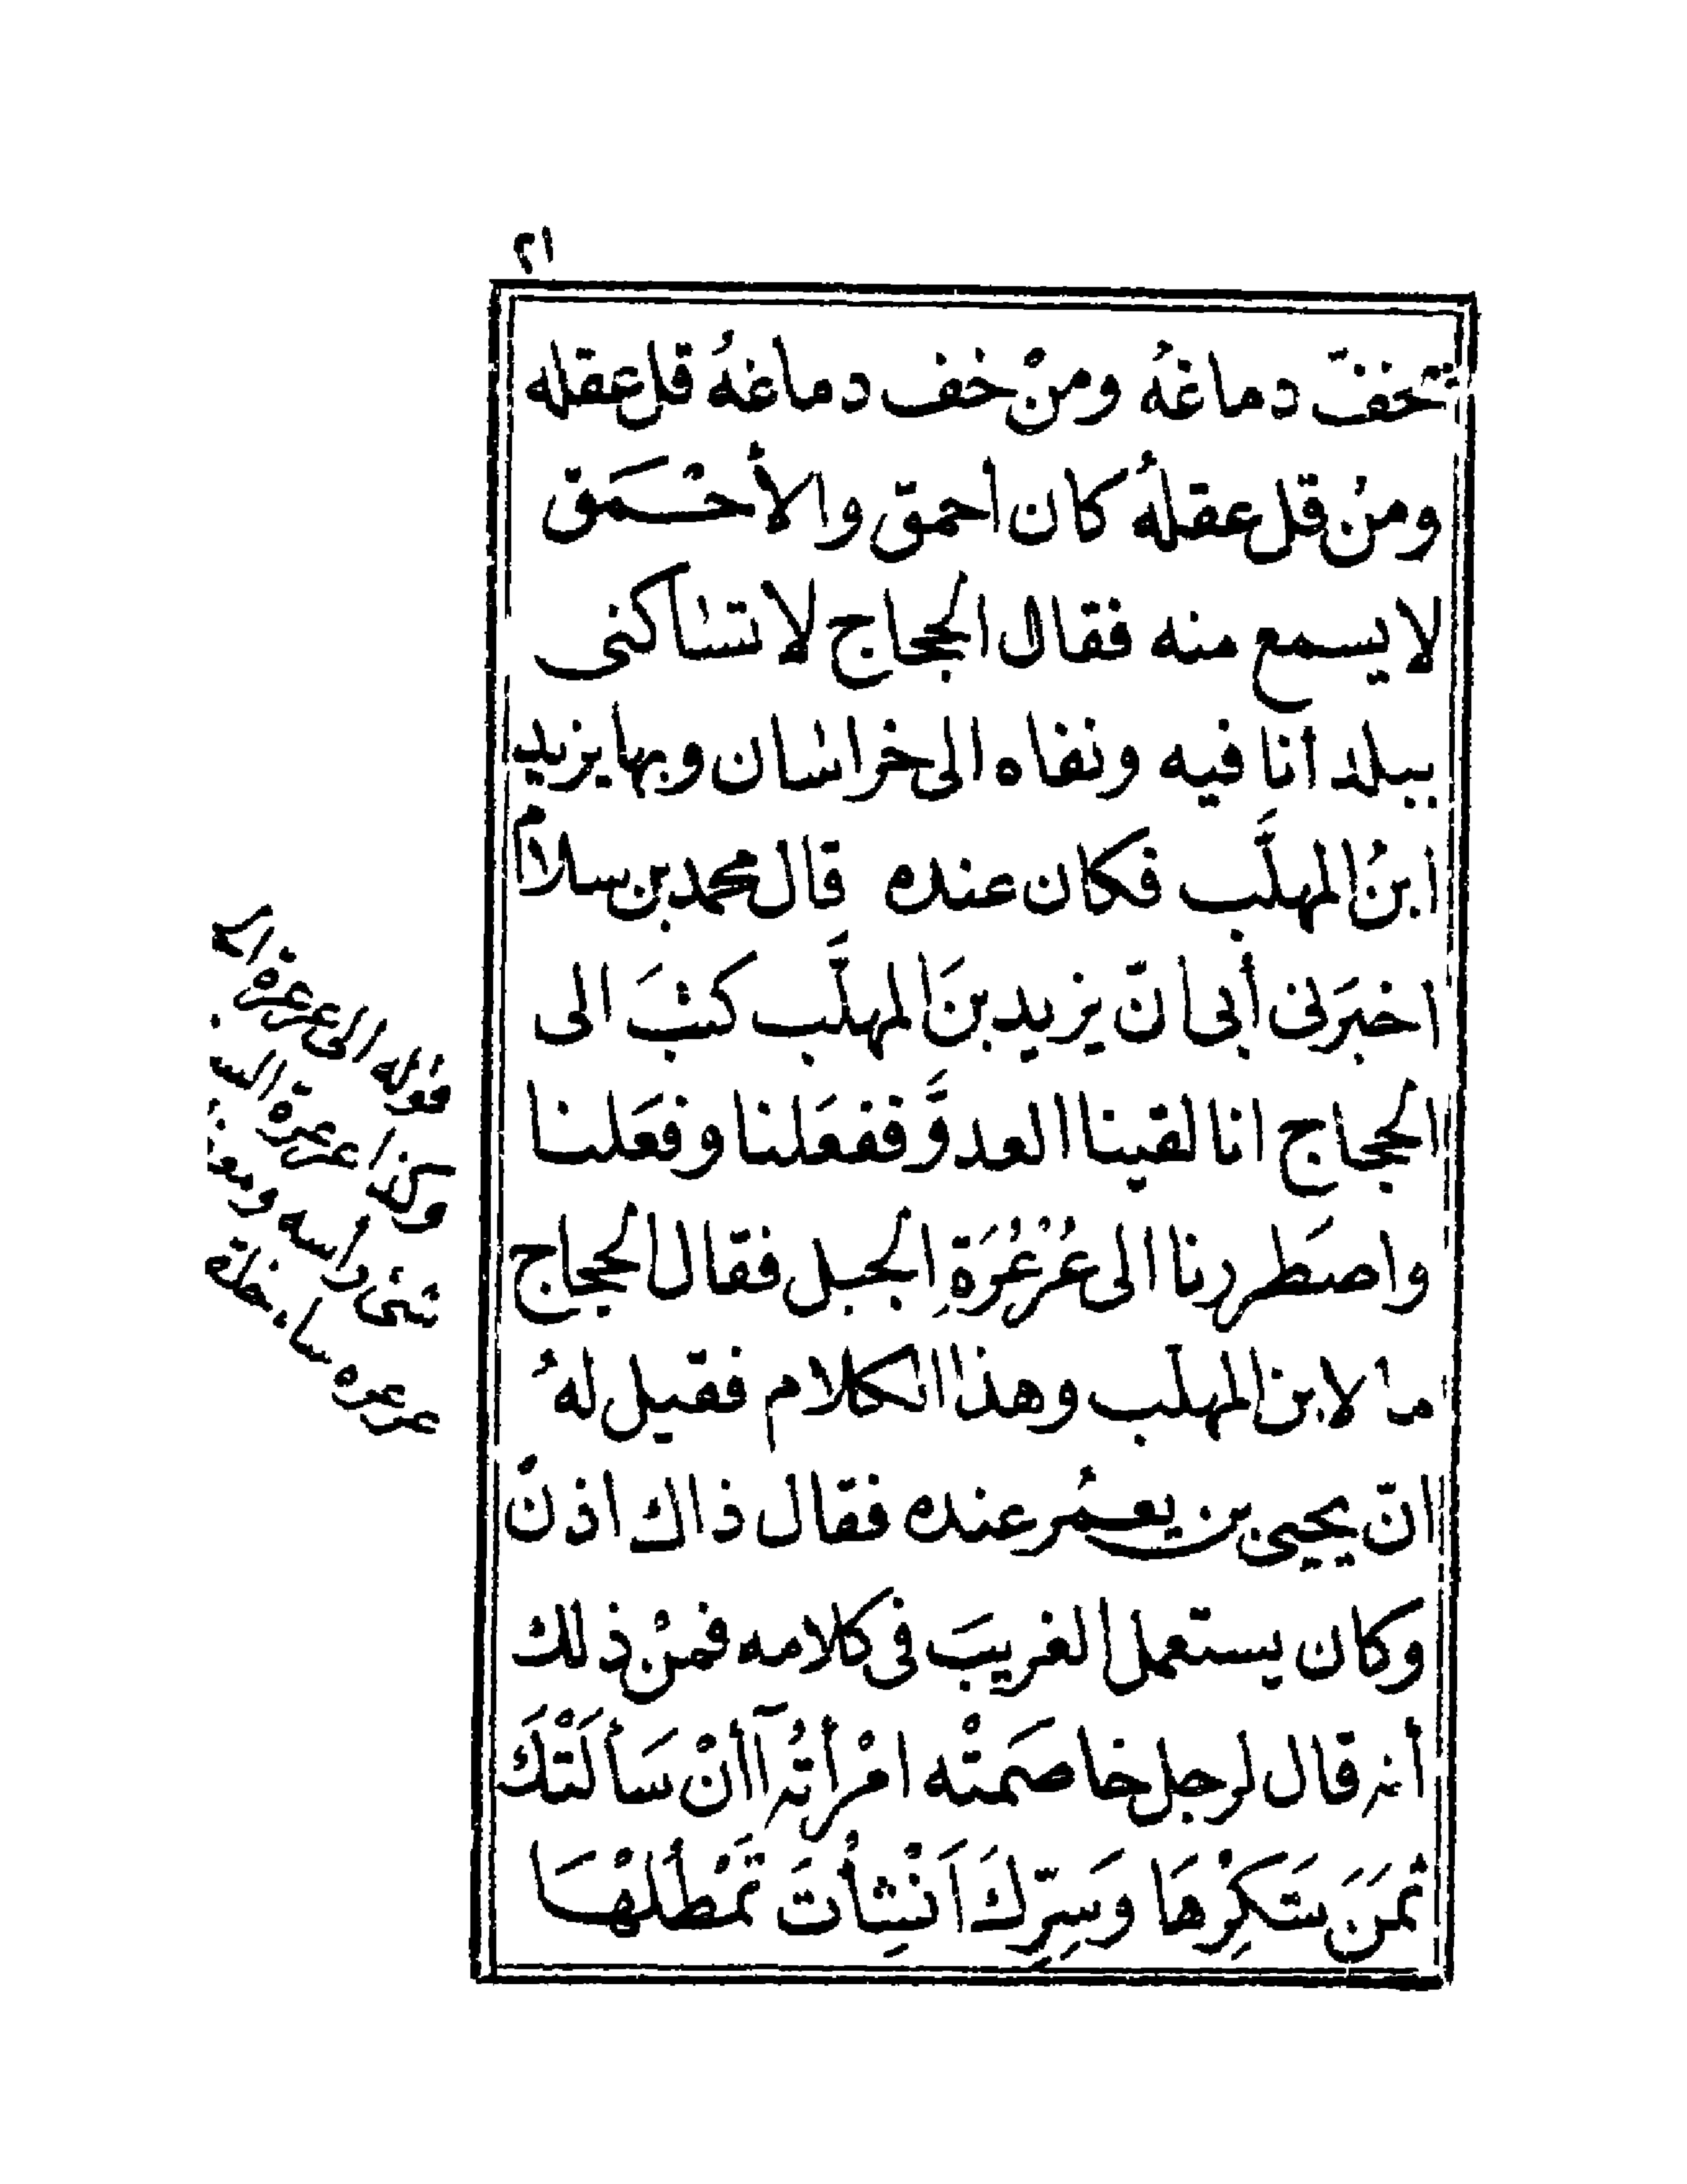 ٢١
تخفّ دماغهُ ومنْ خف دماغهُ قل عقله
ومنْ قل عقلهُ كان أحمق والأحْمَق
لا يسمع منه فقال الحجاج لا تساكنى
ببلد أنا فيه ونفاه الى خراسان وبها يزيد
ابنُ المهلَّب فكان عنده قال محمد بن سلام
اخبَرنى أبى انّ يزيد بنَ المهلَّب كتبَ الى
الحجاج انا لقينا العدوَّ ففعَلنا وفعَلنا
واضطَررنا الى عُرْعُرَةِ الجبل فقال الحجاج
ما لابن المهلب وهذا الكلام فقيل لهُ
انّ يحيى بن يعمُر عنده فقال ذاك اذنْ
وكان يستعمل الغريبَ فى كلامه فمنْ ذلك
أنه قال لرجل خاصَمتْه امْرأتُه آأنْ سَألَتْكَ
ثمَنَ شَكِرْهَا وَسِرِّكَ اَنْشِأتَ تَمْطُلَهْا
قوله الى عرعرة
وكذا عرعرة
شئ رأسه
عرعره